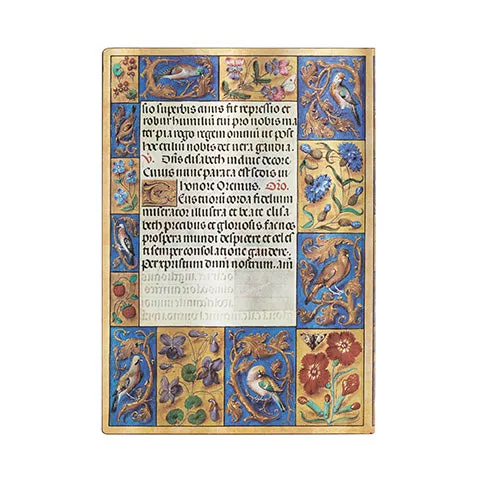 sio superbis amis fit repressio et
robur humilium tui pro nobis ma
ter pia rogo regem omnium ut post
hoc exilium nobis det vera gaudia.
V. Dña elisabeth indue decore
Cuius nunc parata est sedis in
honore Oremus. Oro.
fidelium
miserator illustra et beate elisa
beth precibus et gloriosis fac nos
prospera mundi despicere et celes
ti semper consolatione gaudere.
Per xpistum dnm nostrum. am